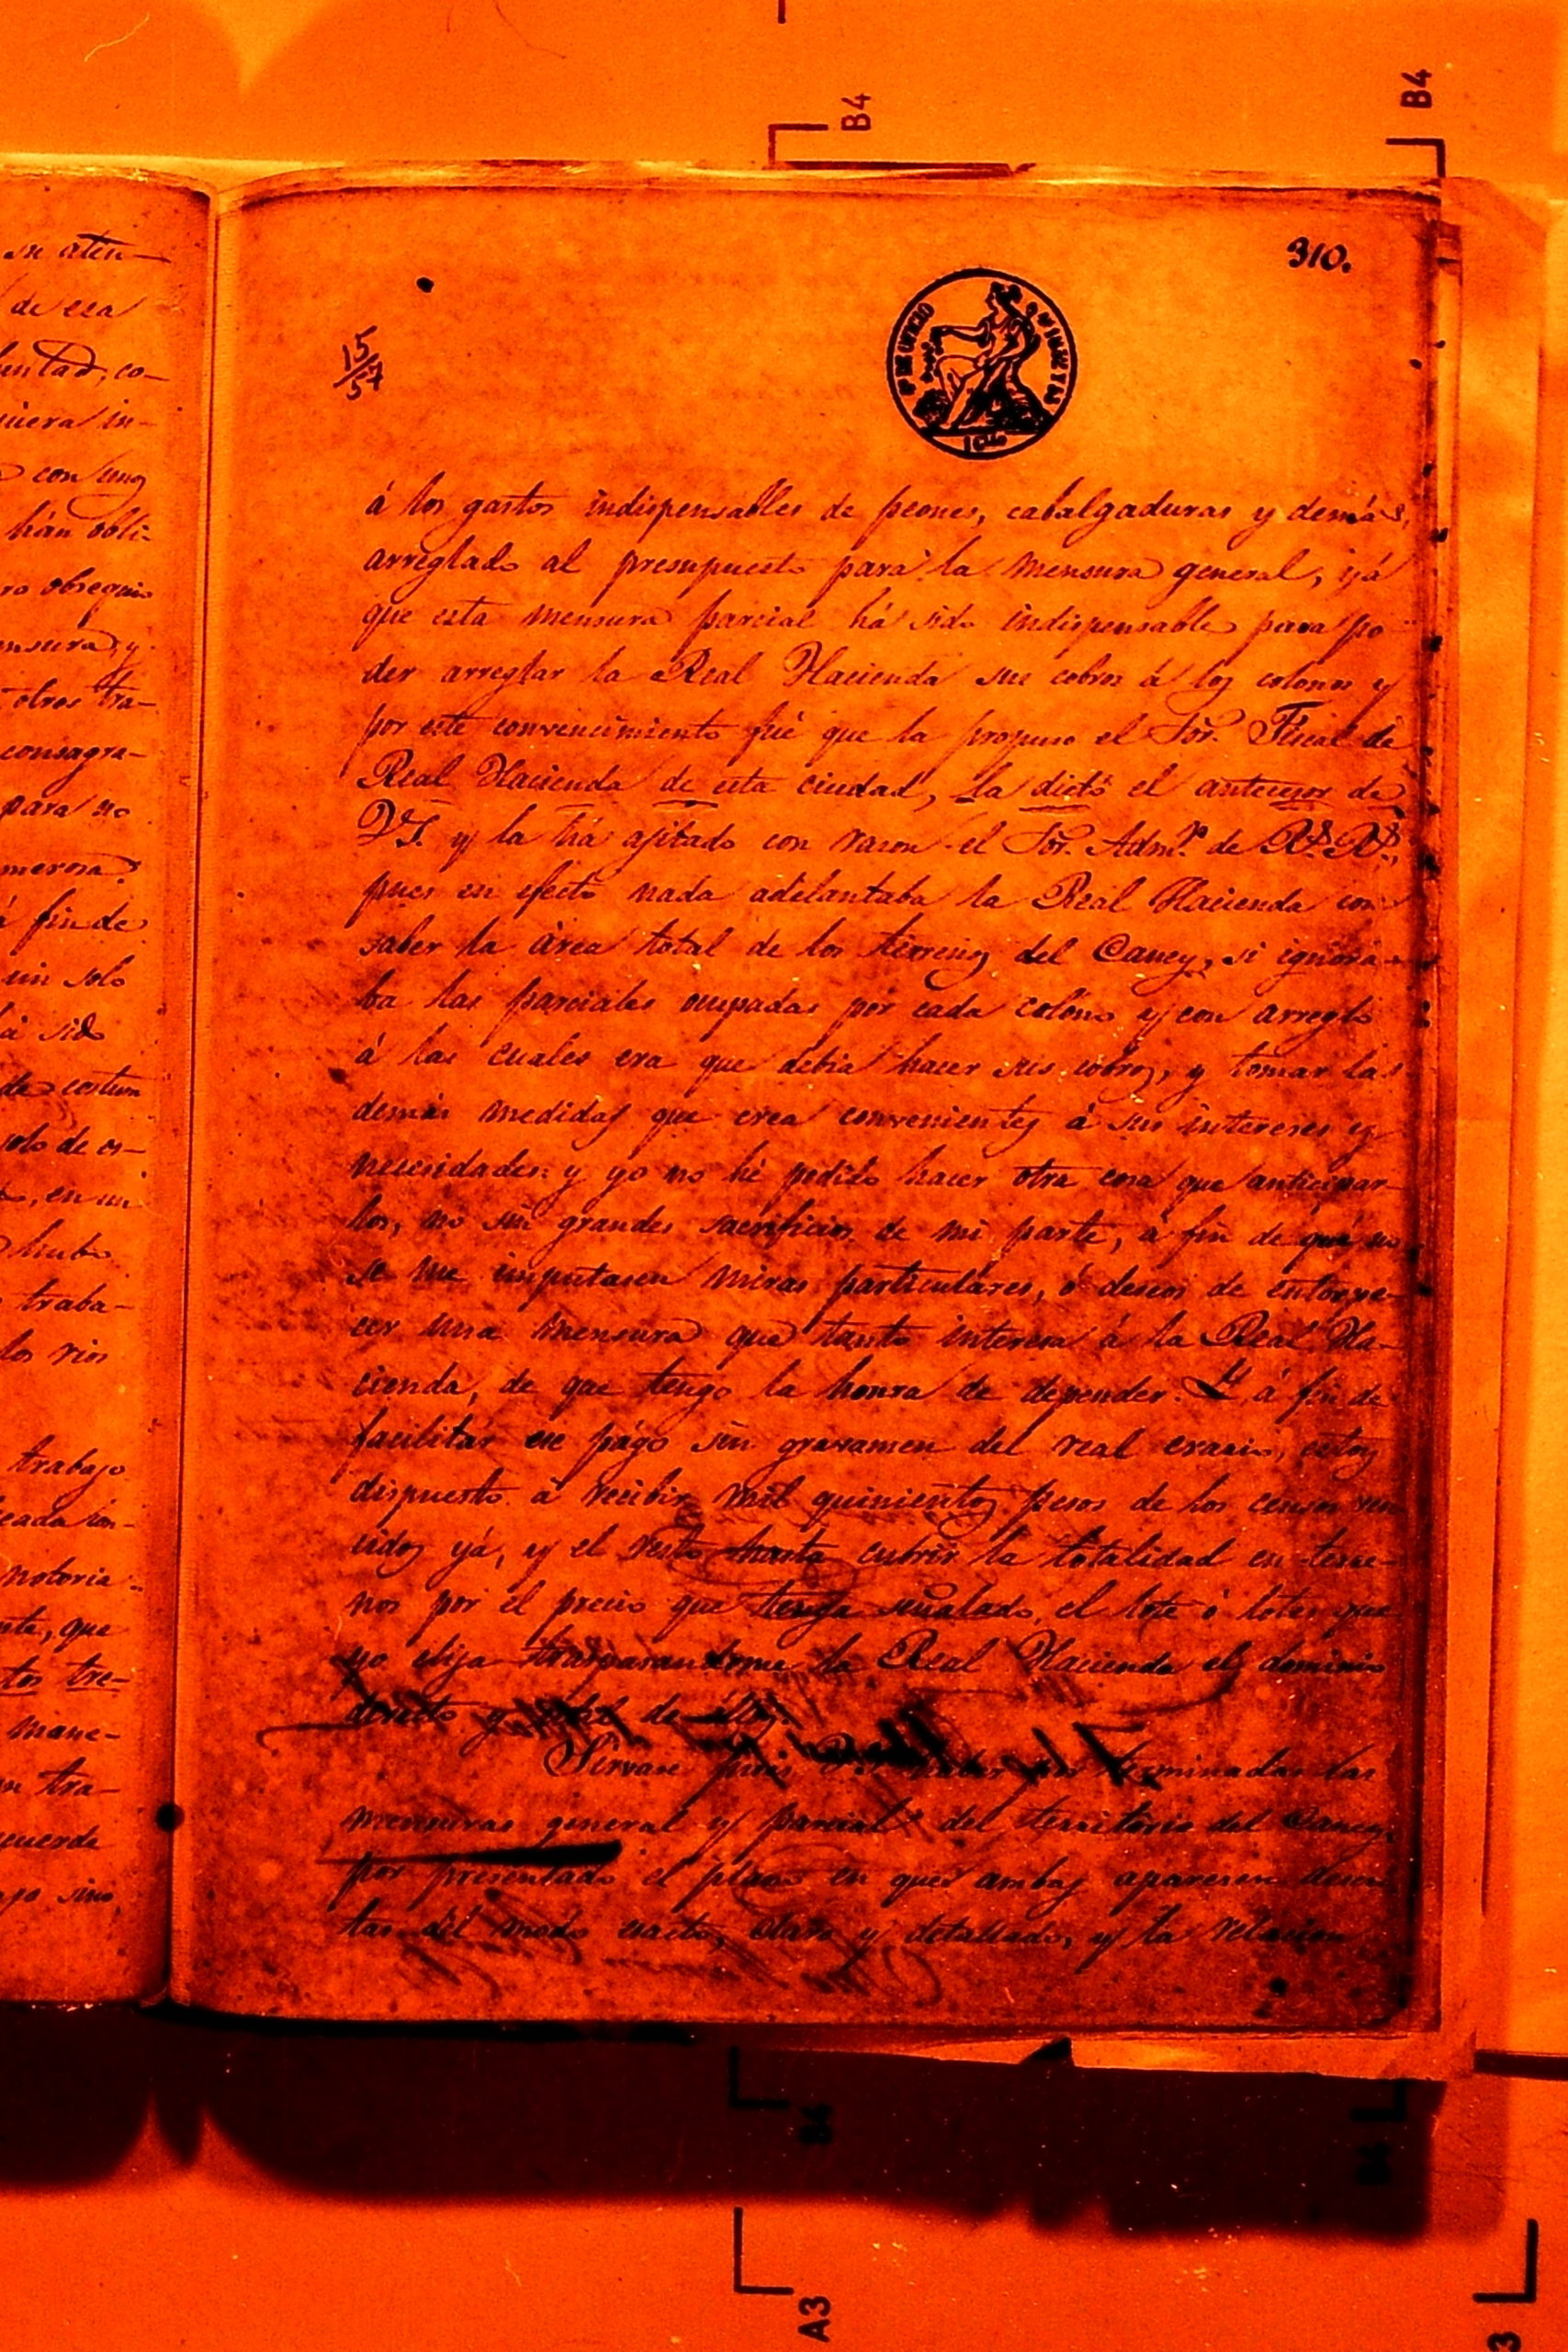 se aten-
de esa
untad, co-
uiera in-
con unos
hán obli-
ro obsequio
ensura, y
otros tra-
consagra-
para no
merosa
á fin de
un solo
á sido
de costum
solo de es-
, en un
hubo
traba-
los rios
trabajo
eada con-
notoria
nte, que
tos tre-
mane-
tra-
cuerde
ajo sino,
B4
B4
310.
15/57
á los gastos indispensables de peones, cabalgaduras y demás,
arreglado al presupuesto para la mensura general, yá
que esta mensura parcial há sido indispensable para po-
der arreglar la Real Hacienda sus cobros á los colonos y
por este convencimiento fué que la propuso el Sor. Fiscal de
Real Hacienda de esta ciudad, la dictó el antecesor de
V.S. y la há ajitado con razon el Sor. Admr. de Rs. Rs.,
pues en efecto nada adelantaba la Real Hacienda con
saber la área total de los terrenos del Caney, si ignora-
ba las parciales ocupadas por cada colono y con arreglo
á las cuales era que debia hacer sus cobros, y tomar las
demás medidas que crea convenientes á sus intereses y
necesidades: y yo no hé podido hacer otra cosa que anticipar-
los, no sin grandes sacrificios de mi parte, á fin de que no
se me imputasen miras particulares, ó deseos de entorpe-
cer una mensura que tanto interesa á la Real Ha-
cienda, de que tengo la honra de depender. Y á fin de
facilitar ese págo sin gravamen del real erario, estoy
dispuesto á recibir mil quinientos pesos de los censos ven
cidos yá, y el resto hasta cubrir la totalidad en terre-
nos por el precio que tenga señalado el lote ó lotes que
yo elija traspasandome la Real Hacienda el dominio
directo y util de ellos.
Sirvase pues V.S. haber por terminadas las
mensuras general y parcial del territorio del Caney,
por presentado el plano en que ambas aparecen descri
tas del modo exacto, claro y detallado, y la relacion
B4
A3